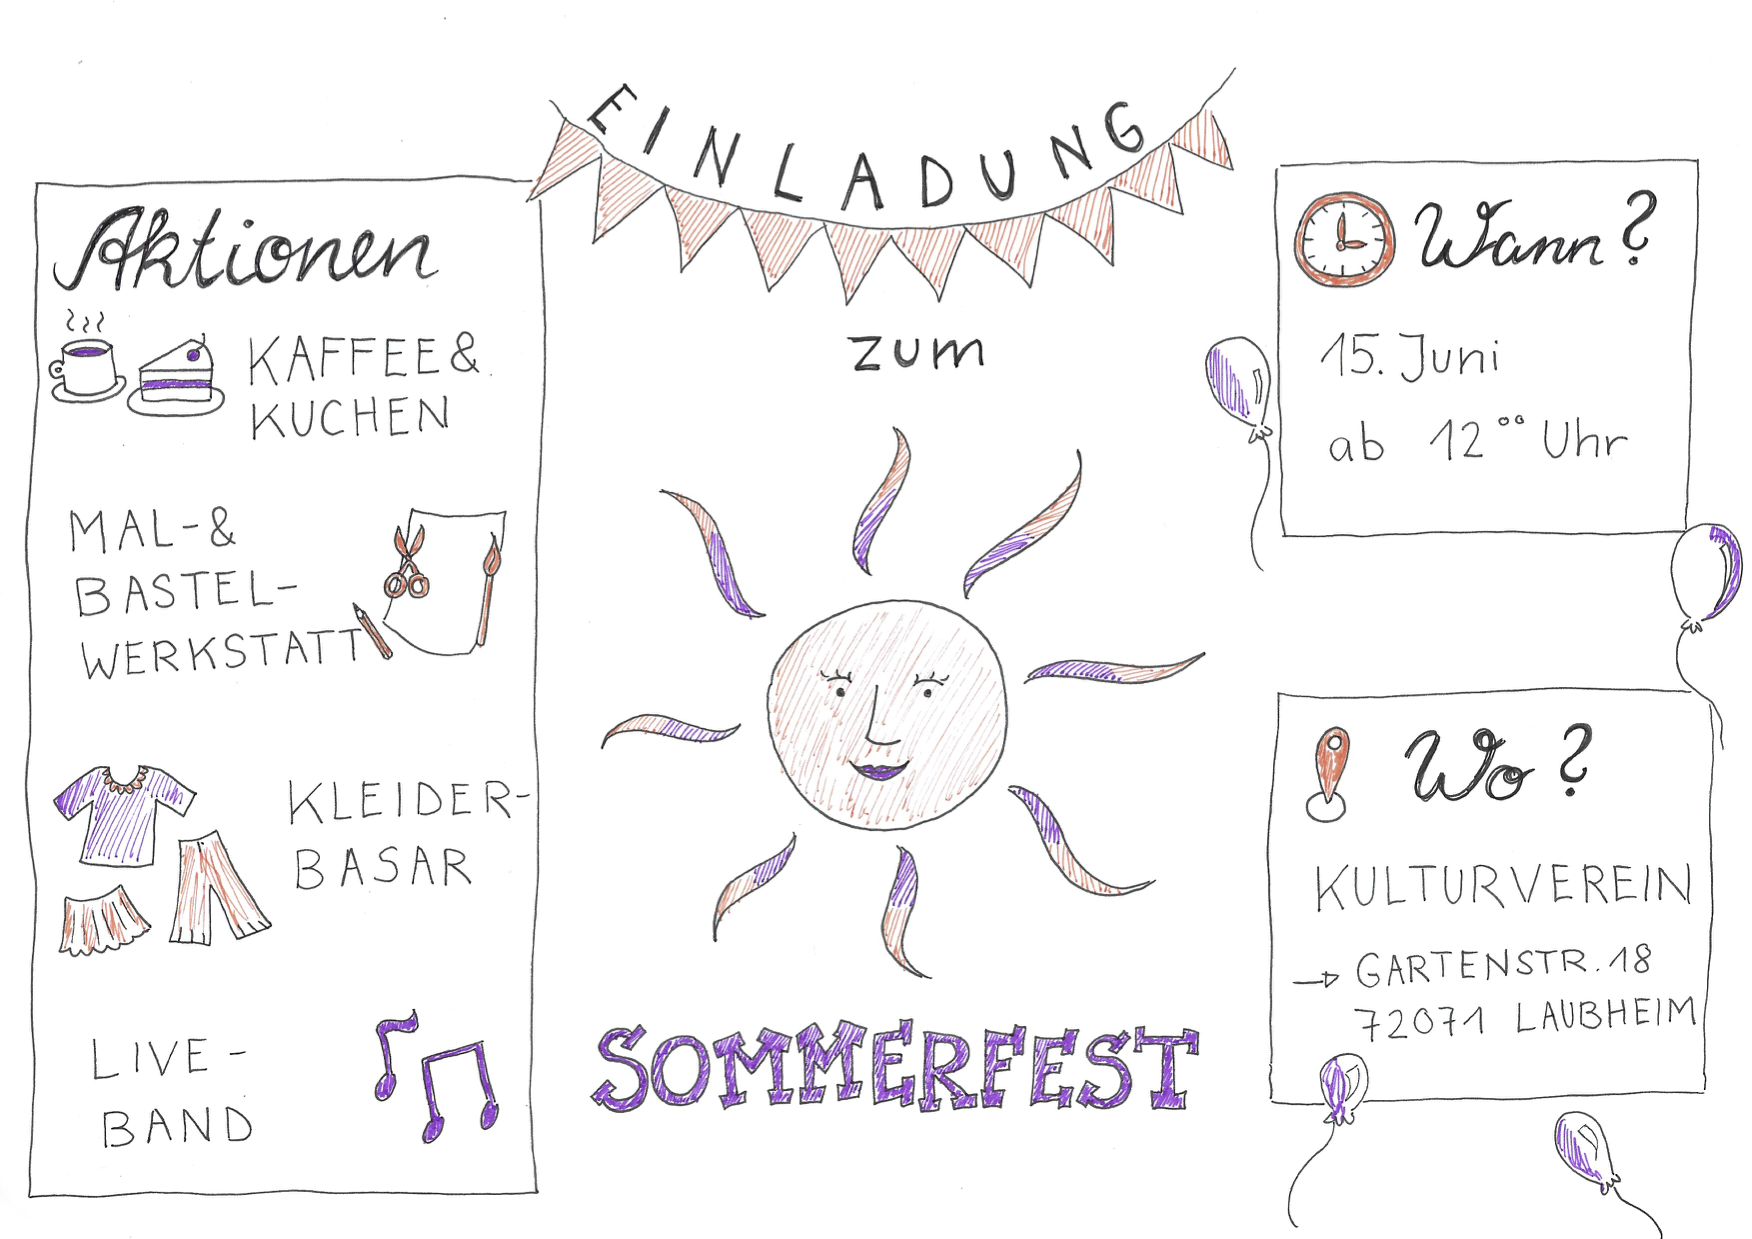 EINLADUNG
zum
SOMMERFEST
Aktionen
KAFFEE &
KUCHEN
MAL- &
BASTEL-
WERKSTATT
KLEIDER-
BASAR
LIVE-
BAND
Wann?
15. Juni
ab 12°° Uhr
Wo?
KULTURVEREIN
→ GARTENSTR. 18
72071 LAUBHEIM